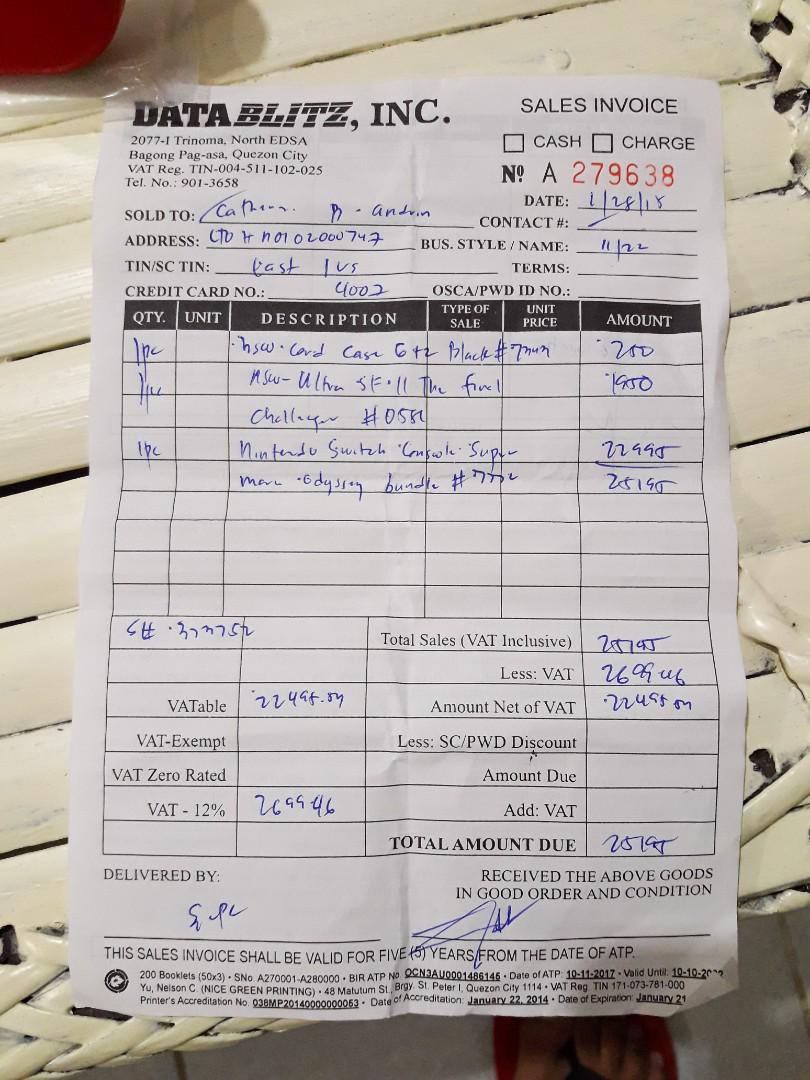 DATABLITZ, INC.
SALES INVOICE
2077-I Trinoma, North EDSA
Bagong Pag-asa, Quezon City
VAT Reg. TIN-004-511-102-025
Tel. No.: 901-3658
CASH CHARGE
Nº A 279638
DATE: 1/28/18
SOLD TO:
CONTACT #:
ADDRESS:
BUS. STYLE / NAME: 11/22
TIN/SC TIN: East
TERMS:
CREDIT CARD NO.: 4002
OSCA/PWD ID NO.:
QTY. UNIT DESCRIPTION TYPE OF SALE UNIT PRICE AMOUNT
1pc nsw Card Case 6+2 Black 250
1pc NSW- Ultra SF II The final 1950
Challenger
1pc Nintendo Switch Console Super 22995
Odyssey bundle 25195
Total Sales (VAT Inclusive) 25195
Less: VAT 2699.46
VATable 22495.54
Amount Net of VAT 22495.54
VAT-Exempt
Less: SC/PWD Discount
VAT Zero Rated
Amount Due
VAT - 12% 2699.46
Add: VAT
TOTAL AMOUNT DUE 25195
DELIVERED BY:
RECEIVED THE ABOVE GOODS
IN GOOD ORDER AND CONDITION
THIS SALES INVOICE SHALL BE VALID FOR FIVE (5) YEARS FROM THE DATE OF ATP.
200 Booklets (50x3) • SNo. A270001-A280000 • BIR ATP No. OCN3AU0001486145 • Date of ATP: 10-11-2017 • Valid Until: 10-10-
Yu, Nelson C. (NICE GREEN PRINTING) • 48 Matutum St., Brgy. St. Peter I, Quezon City 1114 • VAT Reg. TIN 171-073-781-000
Printer's Accreditation No. 038MP20140000000053 • Date of Accreditation: January 22, 2014 • Date of Expiration: January 21